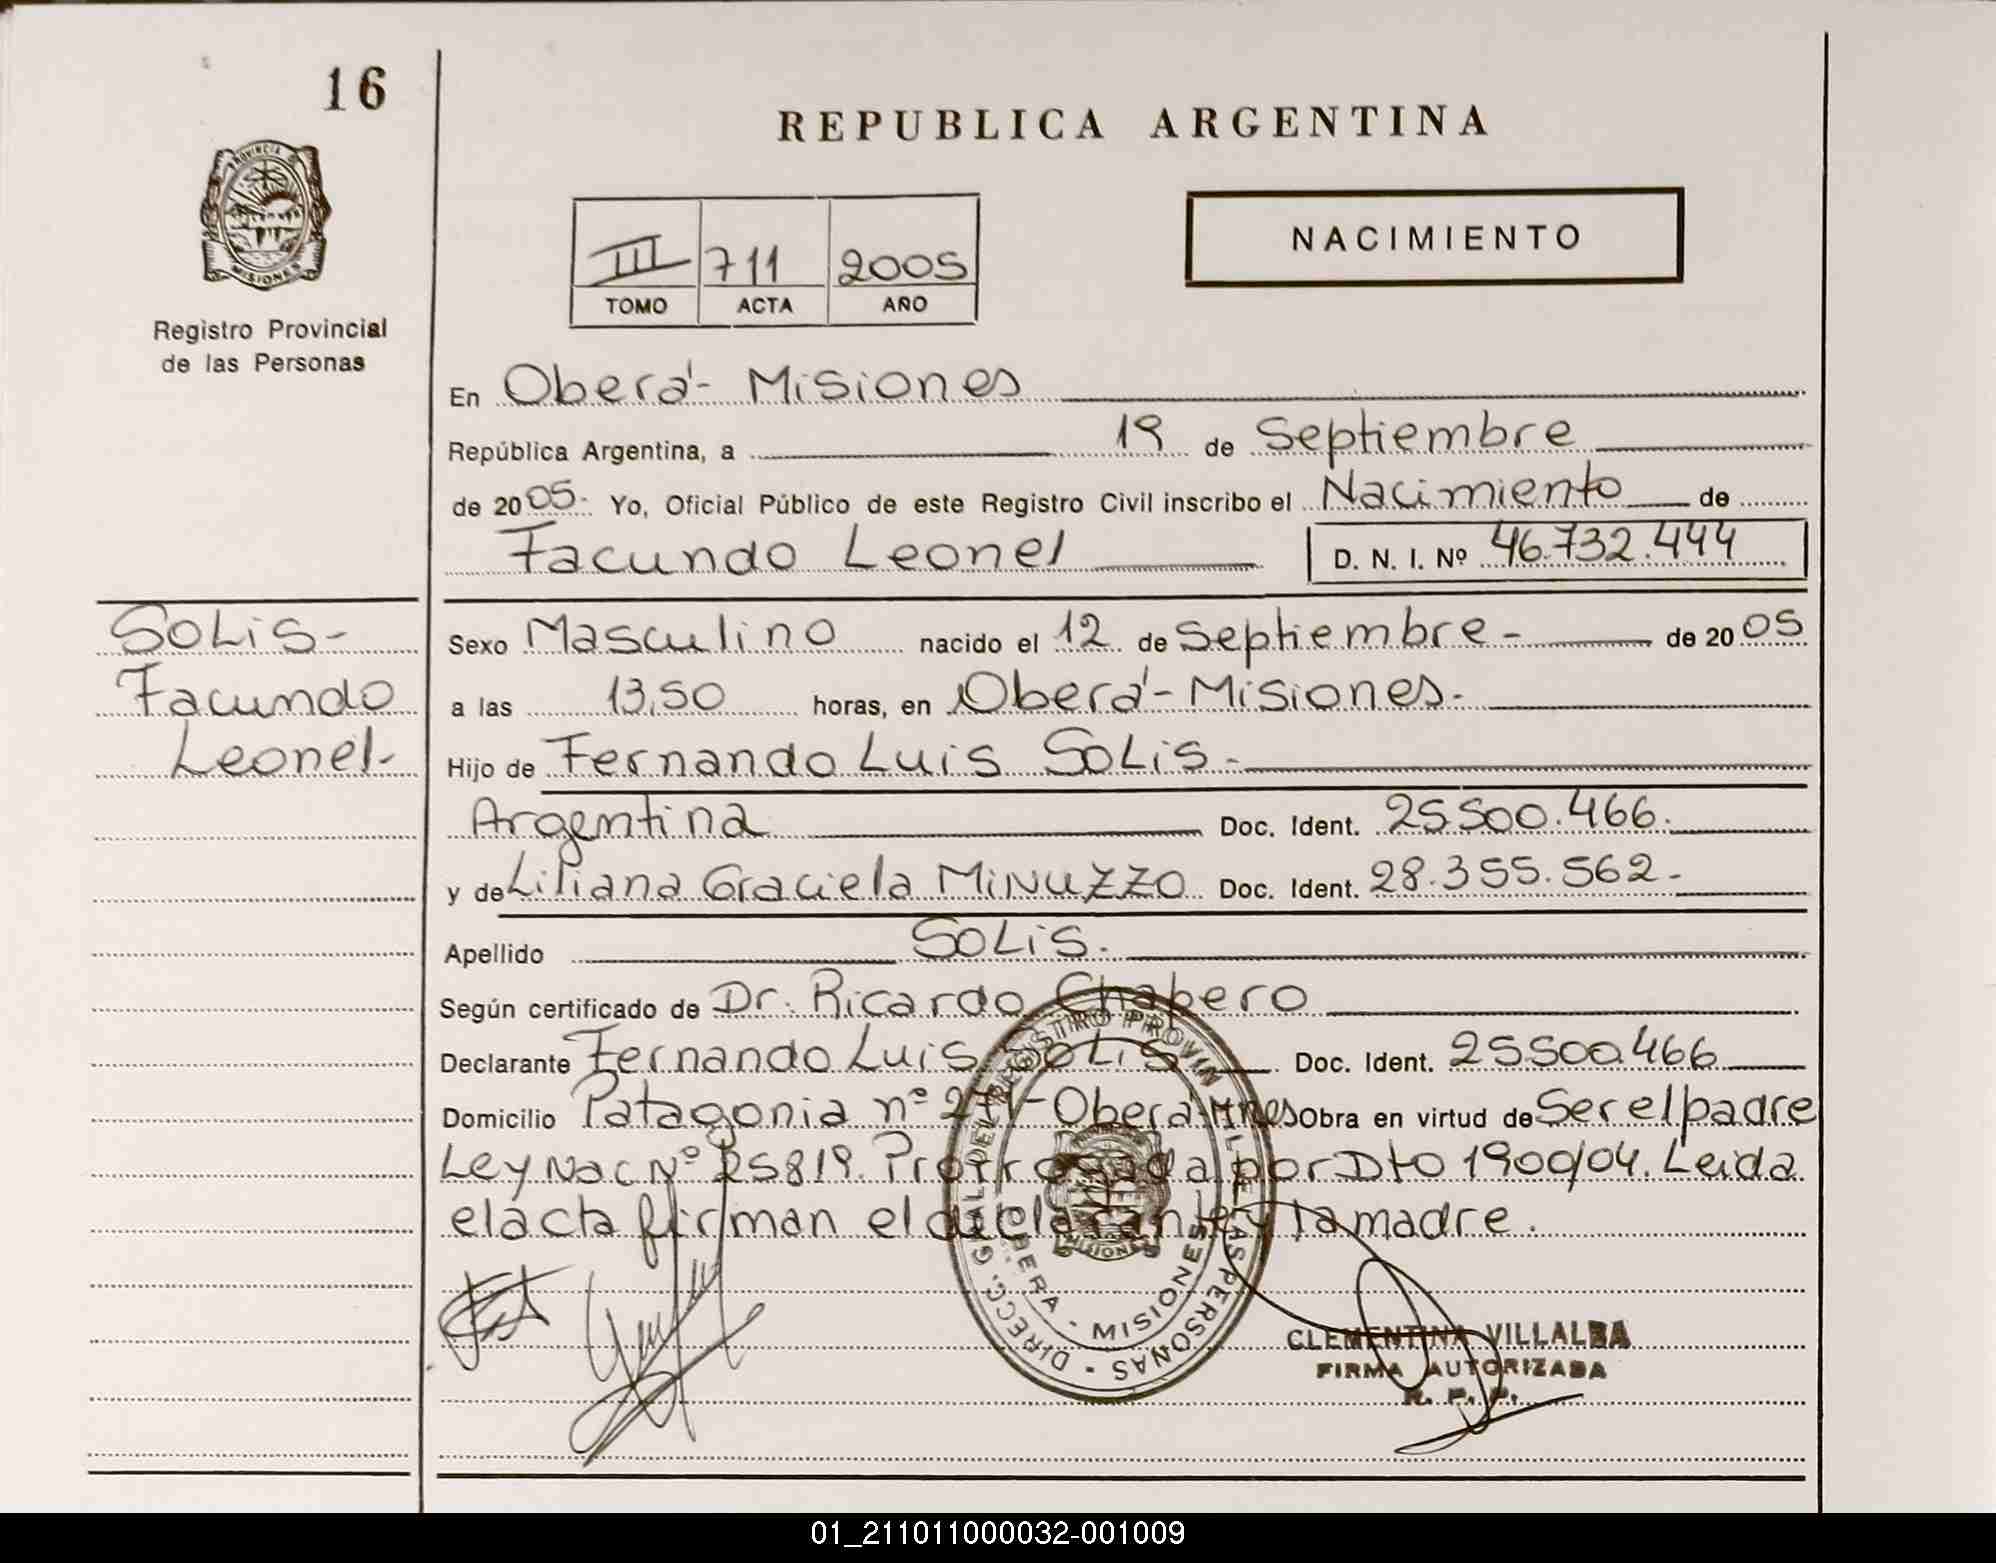 16
REPUBLICA ARGENTINA
PROVINCIA DE
MISIONES
Registro Provincial
de las Personas
III 711 2005
TOMO ACTA AÑO
NACIMIENTO
En Oberá - Misiones
República Argentina, a 19 de Septiembre
de 2005- Yo, Oficial Público de este Registro Civil inscribo el Nacimiento de
Facundo Leonel D. N. I. Nº 46.732.444
SOLiS-
Facundo
Leonel-
Sexo Masculino nacido el 12 de Septiembre - de 2005
a las 13,50 horas, en Oberá - Misiones.
Hijo de Fernando Luis SOLiS -
Argentina Doc. Ident. 25.500.466.
y de Liliana Graciela MiNUZZO Doc. Ident. 28.355.562-
Apellido SOLiS.
Según certificado de Dr. Ricardo Chabero
Declarante Fernando Luis SOLiS Doc. Ident. 25.500.466
Domicilio Patagonia nº - Oberá - Mnes Obra en virtud de Ser el padre
Ley Nac Nº 25819. Prorrogada por Dto 1900/04. Leida
el acta firman el declarante y la madre.
DIRECC. GRAL DEL REGISTRO PROVIN DE LAS PERSONAS
OBERA - MISIONES
MISIONES
CLEMENTINA VILLALBA
FIRMA AUTORIZADA
R. P. P.
01_211011000032-001009